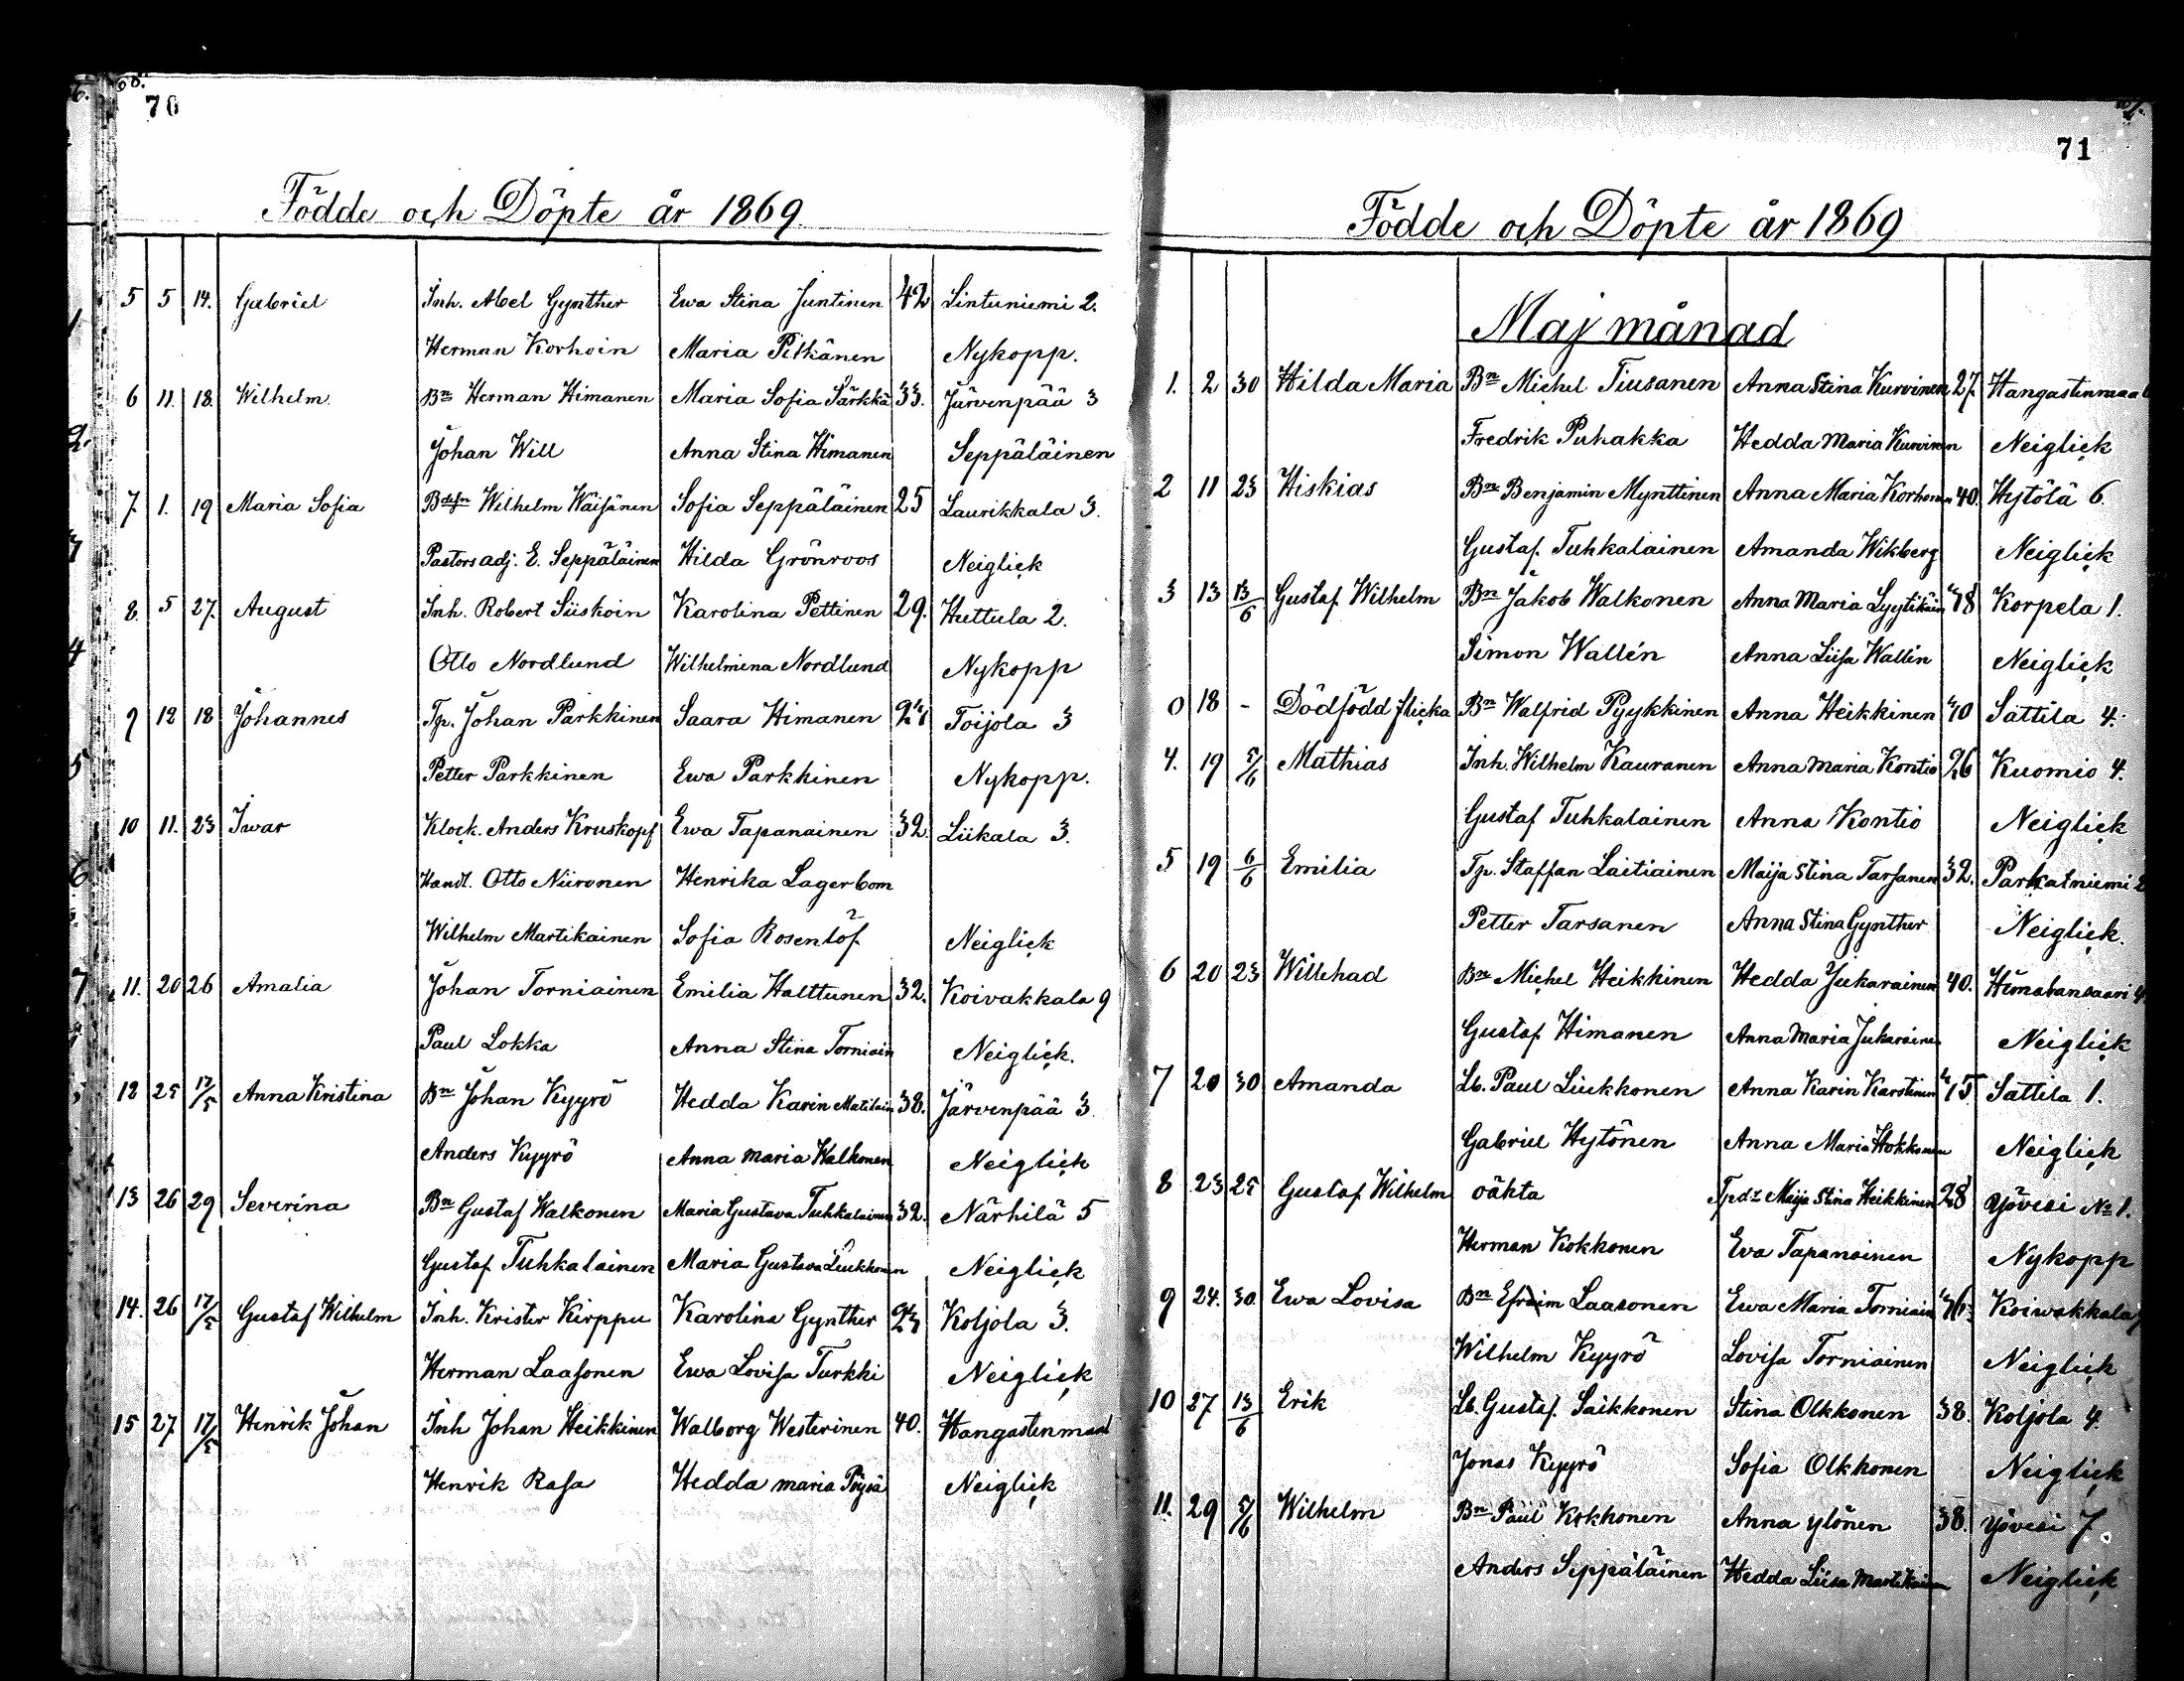 70
Födde och Döpte år 1869.
5 5 14. Gabriel Inh. Abel Gynther Ewa Stina Juntinen 42 Lintuniemi 2.
Herman Korhoin Maria Pitkänen Nykopp.
6 11. 18. Wilhelm. Bn Herman Himanen Maria Sofia Särkkä 33. Järvenpää 3
Johan Will Anna Stina Himanen Seppäläinen
7. 1. 19 Maria Sofia Wilhelm Wäisänen Sofia Seppäläinen 25 Laurikkala 3.
Pastors adj. E. Seppäläinen Hilda Grönroos Neiglick
8. 5 27. August Inh. Robert Siiskoin Karolina Pettinen 29. Huttula 2.
Otto Nordlund Wilhelmina Nordlund Nykopp
9 12 18 Johannes Tp. Johan Parkkinen Saara Himanen Toijola 3
Petter Parkkinen Ewa Parkkinen Nykopp.
10 11. 23 Iwar Klock. Anders Kruskopf Ewa Tapanainen 32. Liikala 3.
Handl. Otto Niironen Henrika Lagerbom
Wilhelm Martikainen Sofia Rosenlöf Neiglick
11. 20 26 Amalia Johan Torniainen Emilia Halttunen 32. Koivakkala 9
Paul Lokka Anna Stina Torniain Neiglick.
12 25 17/5 Anna Kristina Bn Johan Kyyrö Hedda Karin Matilain 38. Järvenpää 3.
Anders Kyyrö Anna Maria Walkonen Neiglick
13 26 29 Severina Bn Gustaf Walkonen Maria Gustava Tuhkalainen 32. Närhilä 5
Gustaf Tuhkalainen Maria Gustava Liukkonen Neiglick
14. 26 17/5 Gustaf Wilhelm Inh. Krister Kirppu Karolina Gynther Koljola 3.
Herman Laasonen Ewa Lovisa Turkki Neiglick
15 27 17/5 Henrik Johan Inh Johan Heikkinen Walborg Westerinen 40. Hangastenmaa
Henrik Rasa Hedda Maria Pöysä Neiglick
71
Födde och Döpte år 1869
Maj månad
1. 2 30 Hilda Maria Bn Michel Tiusanen Anna Stina Kurvinen 27. Hangastenmaa
Fredrik Puhakka Hedda Maria Kurvinen Neiglick
2 11 23 Hiskias Bn Benjamin Mynttinen Anna Maria Korhonen 40. Hytölä 6.
Gustaf Tuhkalainen Amanda Wikberg Neiglick
3 13 13/6 Gustaf Wilhelm Bn Jakob Walkonen Anna Maria Lyytikäin 48 Korpela 1.
Simon Wallén Anna Liisa Wallén Neiglick
0 18 - Dödfödd flicka Bn Walfrid Pyykkinen Anna Heikkinen 40 Sättilä 4.
4. 19 5/6 Mathias Inh. Wilhelm Kauranen Anna Maria Kontio 26 Kuomio 4.
Gustaf Tuhkalainen Anna Kontio Neiglick
5 19 6/6 Emilia Tp. Staffan Laitiainen Maija Stina Tarsanen 32. Parkatniemi 2
Petter Tarsanen Anna Stina Gynther Neiglick.
6 20 23 Willehad Bn Michel Heikkinen Hedda Jukarainen 40. Himalansaari 4.
Gustaf Himanen Anna Maria Jukarainen Neiglick
7 20 30 Amanda Lb. Paul Liukkonen Anna Karin Karstinen 45 Sättilä 1.
Gabriel Hytönen Anna Maria Hokkanen Neiglick
8 23 25 Gustaf Wilhelm oäkta Tpdr Maija Stina Heikkinen 28 Yövesi No 1.
Herman Kokkonen Eva Tapanainen Nykopp
9 24. 30. Ewa Lovisa Bn Efraim Laasonen Ewa Maria Torniain 46 Koiwakkala
Wilhelm Kyyrö Lovisa Torniainen Neiglick
10 27 13/6 Erik Lb. Gustaf Saikkonen Stina Olkkonen 38. Koljola 4.
Jonas Kyyrö Sofia Olkkonen Neiglick
11. 29 5/6 Wilhelm Bn Paul Kokkonen Anna Ylönen 38. Yövesi 7.
Anders Seppäläinen Hedda Liisa Martikainen Neiglick